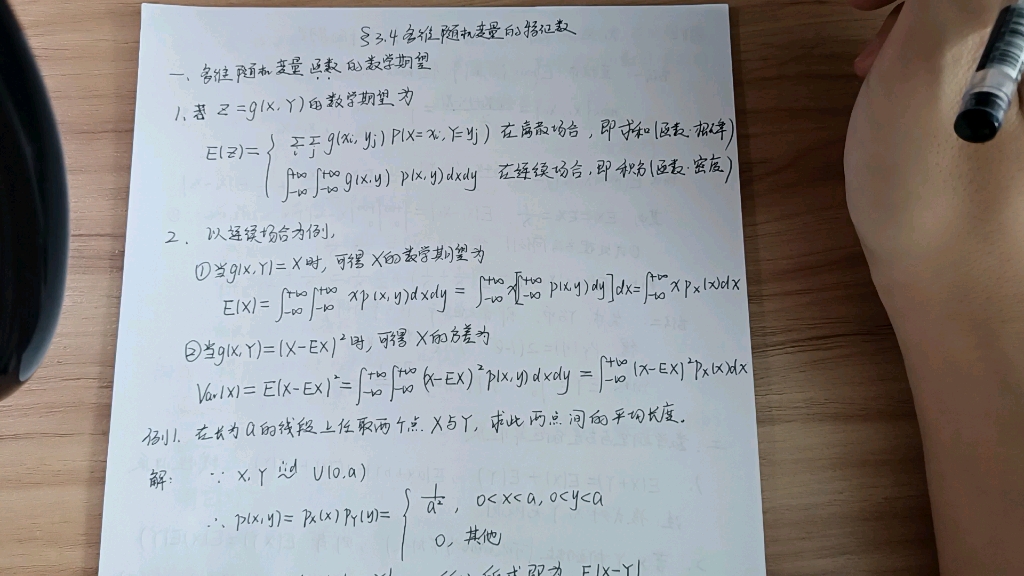 §3.4 多维随机变量的特征数
一、多维随机变量函数的数学期望
1. 若 Z=g(X,Y)的数学期望为
E(Z)= { Σ_i Σ_j g(xi, yj) P(X=xi, Y=yj) 在离散场合，即求和(函数·概率)
∫_{-∞}^{+∞}∫_{-∞}^{+∞} g(x,y) p(x,y)dxdy 在连续场合，即积分(函数·密度)
2. 以连续场合为例，
①当g(X,Y)=X时，可得X的数学期望为
E(X)=∫_{-∞}^{+∞}∫_{-∞}^{+∞} xp(x,y)dxdy = ∫_{-∞}^{+∞} x[∫_{-∞}^{+∞} p(x,y)dy]dx=∫_{-∞}^{+∞} x p_X(x)dx
②当g(X,Y)=(X-EX)²时，可得X的方差为
Var(X)=E(X-EX)²=∫_{-∞}^{+∞}∫_{-∞}^{+∞} (x-EX)²p(x,y)dxdy = ∫_{-∞}^{+∞} (x-EX)²p_X(x)dx
例1. 在长为a的线段上任取两个点X与Y，求此两点间的平均长度。
解: ∵ X,Y iid U(0,a)
∴ p(x,y)= p_X(x) p_Y(y)= { 1/a², 0<x<a, 0<y<a
0, 其他
所求即为 E|X-Y|